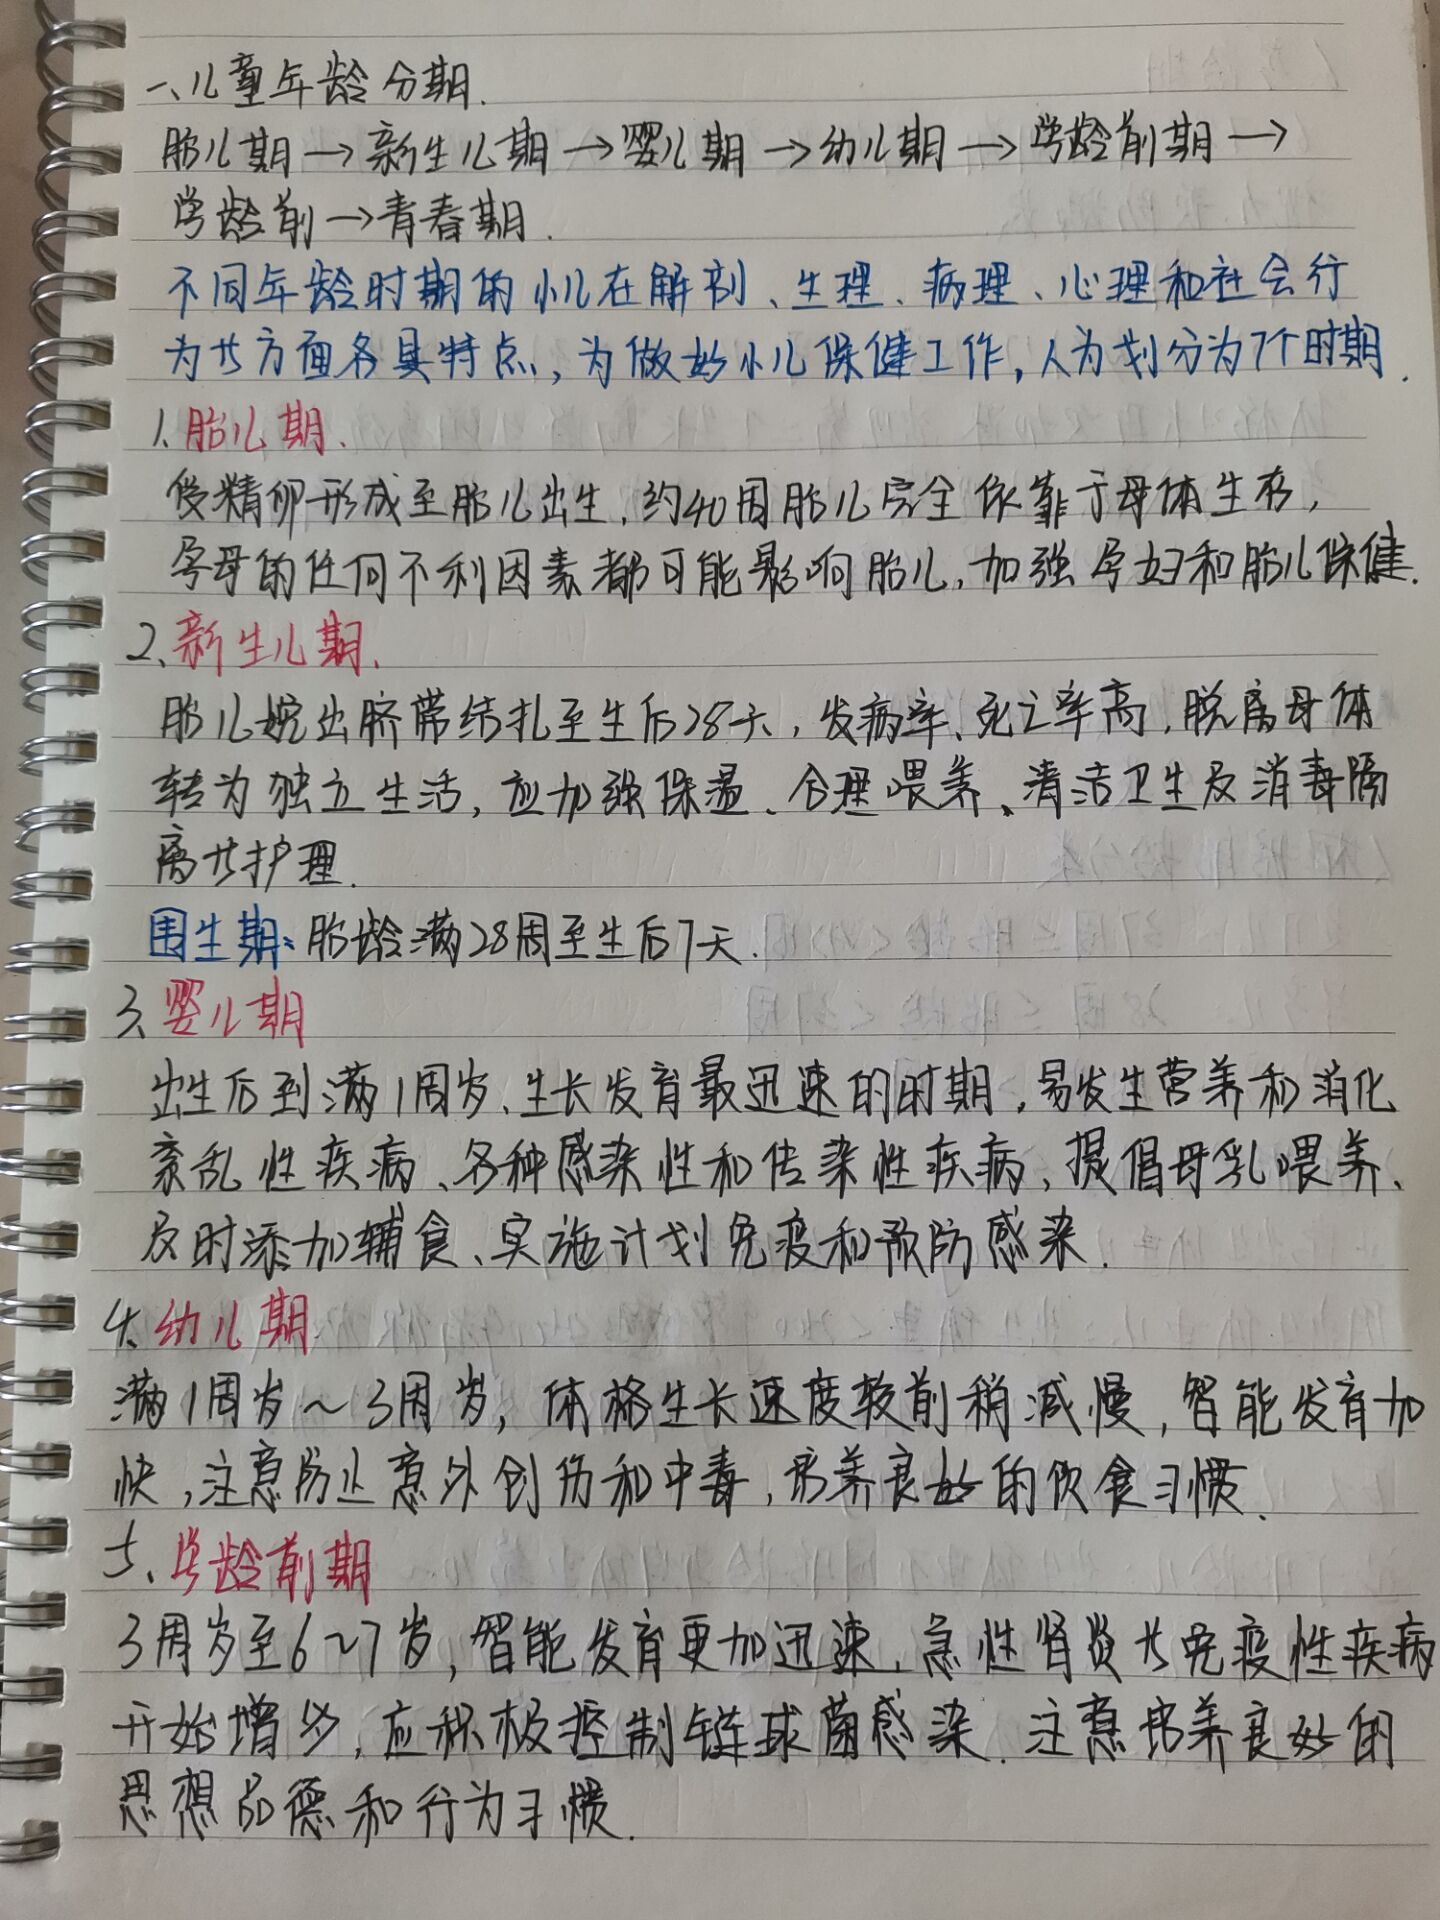 一、儿童年龄分期.
胎儿期→新生儿期→婴儿期→幼儿期→学龄前期→
学龄前→青春期.
不同年龄时期的小儿在解剖、生理、病理、心理和社会行
为廿方面各具特点,为做好小儿保健工作,人为划分为7个时期.
1.胎儿期.
受精卵形成至胎儿出生,约40周胎儿完全依靠于母体生存,
孕母的任何不利因素都可能影响胎儿,加强孕妇和胎儿保健.
2.新生儿期.
胎儿娩出脐带结扎至生后28天,发病率、死亡率高,脱离母体
转为独立生活,应加强保温、合理喂养、清洁卫生及消毒隔
离廿护理.
围生期:胎龄满28周至生后7天.
3.婴儿期
出生后到满1周岁、生长发育最迅速的时期,易发生营养和消化
紊乱性疾病、各种感染性和传染性疾病,提倡母乳喂养、
及时添加辅食、实施计划免疫和预防感染.
4.幼儿期
满1周岁~3周岁,体格生长速度较前稍减慢,智能发育加
快,注意防止意外创伤和中毒,培养良好的饮食习惯.
5、学龄前期
3周岁至6~7岁,智能发育更加迅速,急性肾炎廿免疫性疾病
开始增多,应积极控制链球菌感染.注意培养良好的
思想品德和行为习惯.